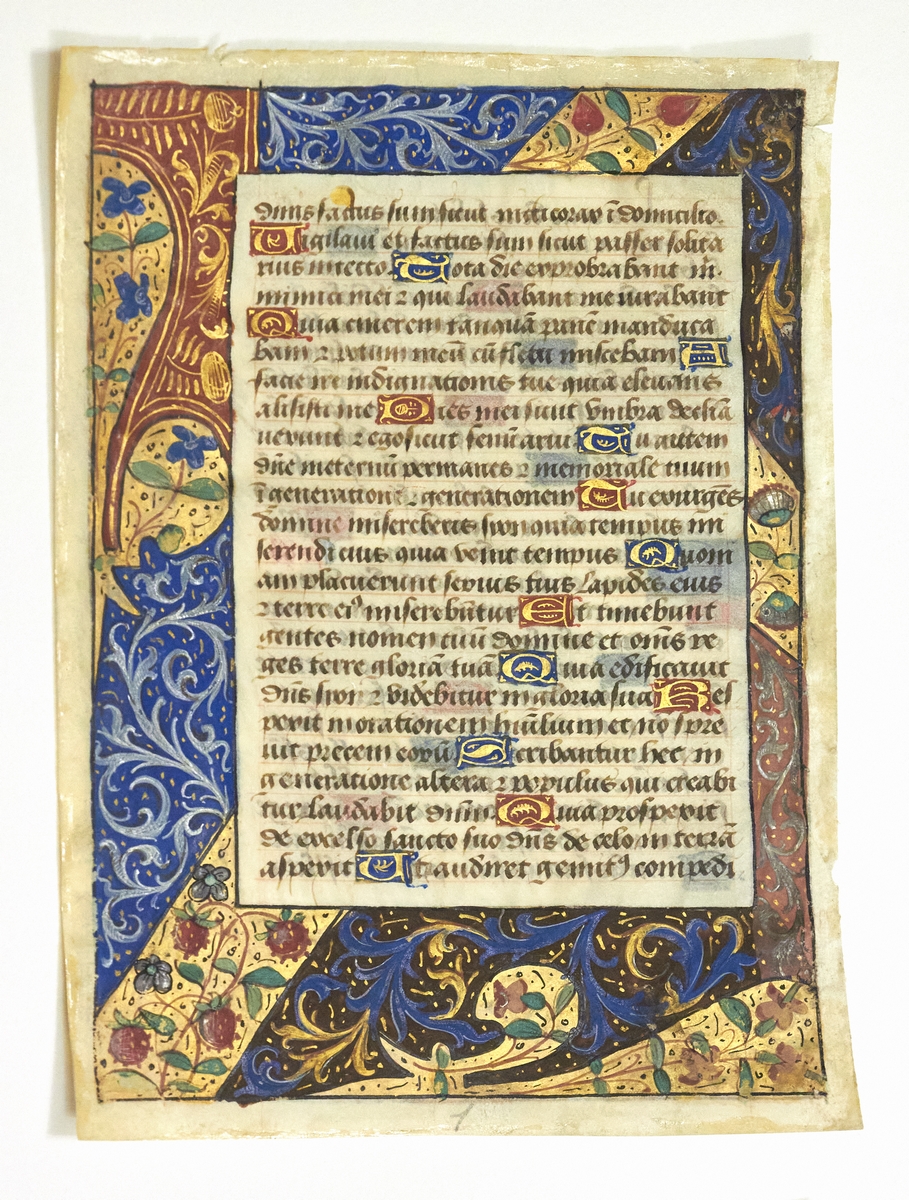 dinis factus sum sicut nicticorax ī domicilio.
Uigilaui et factus sum sicut passer solita
rius intecto. Tota die exprobrabant m̄.
inimici mei ⁊ qui laudabant me iurabant
Quia cinerem tanquā panē manduca
bam ⁊ potum meū cū fletu miscebam A
facie ire indignationis tue quia eleuans
alisisti me Dies mei sicut vmbra declīa
uerunt ⁊ ego sicut fenū arui Tu autem
dn̄e ineternū permanes ⁊ memoriale tuum
ī generatione ⁊ generationem Tu exurgēs
domine misereberis syon quia tempus mi
serendi eius quia venit tempus Quom
am placuerunt seruis tuis lapides eius
⁊ terre eiꝰ miserebūtur Et timebunt
gentes nomen tuū domine et om̄s re
ges terre gloriā tuā Quia edificauit
dn̄s syon ⁊ videbitur in gloria sua Res
pexit in orationem humiliū et nō spre
uit precem eorū Scribantur hec in
generatione altera ⁊ populus qui creabi
tur laudabit dn̄m Quia prospexit
de excelso sancto suo dn̄s de celo in terrā
aspexit Ut audiret gemitꝰ compedi